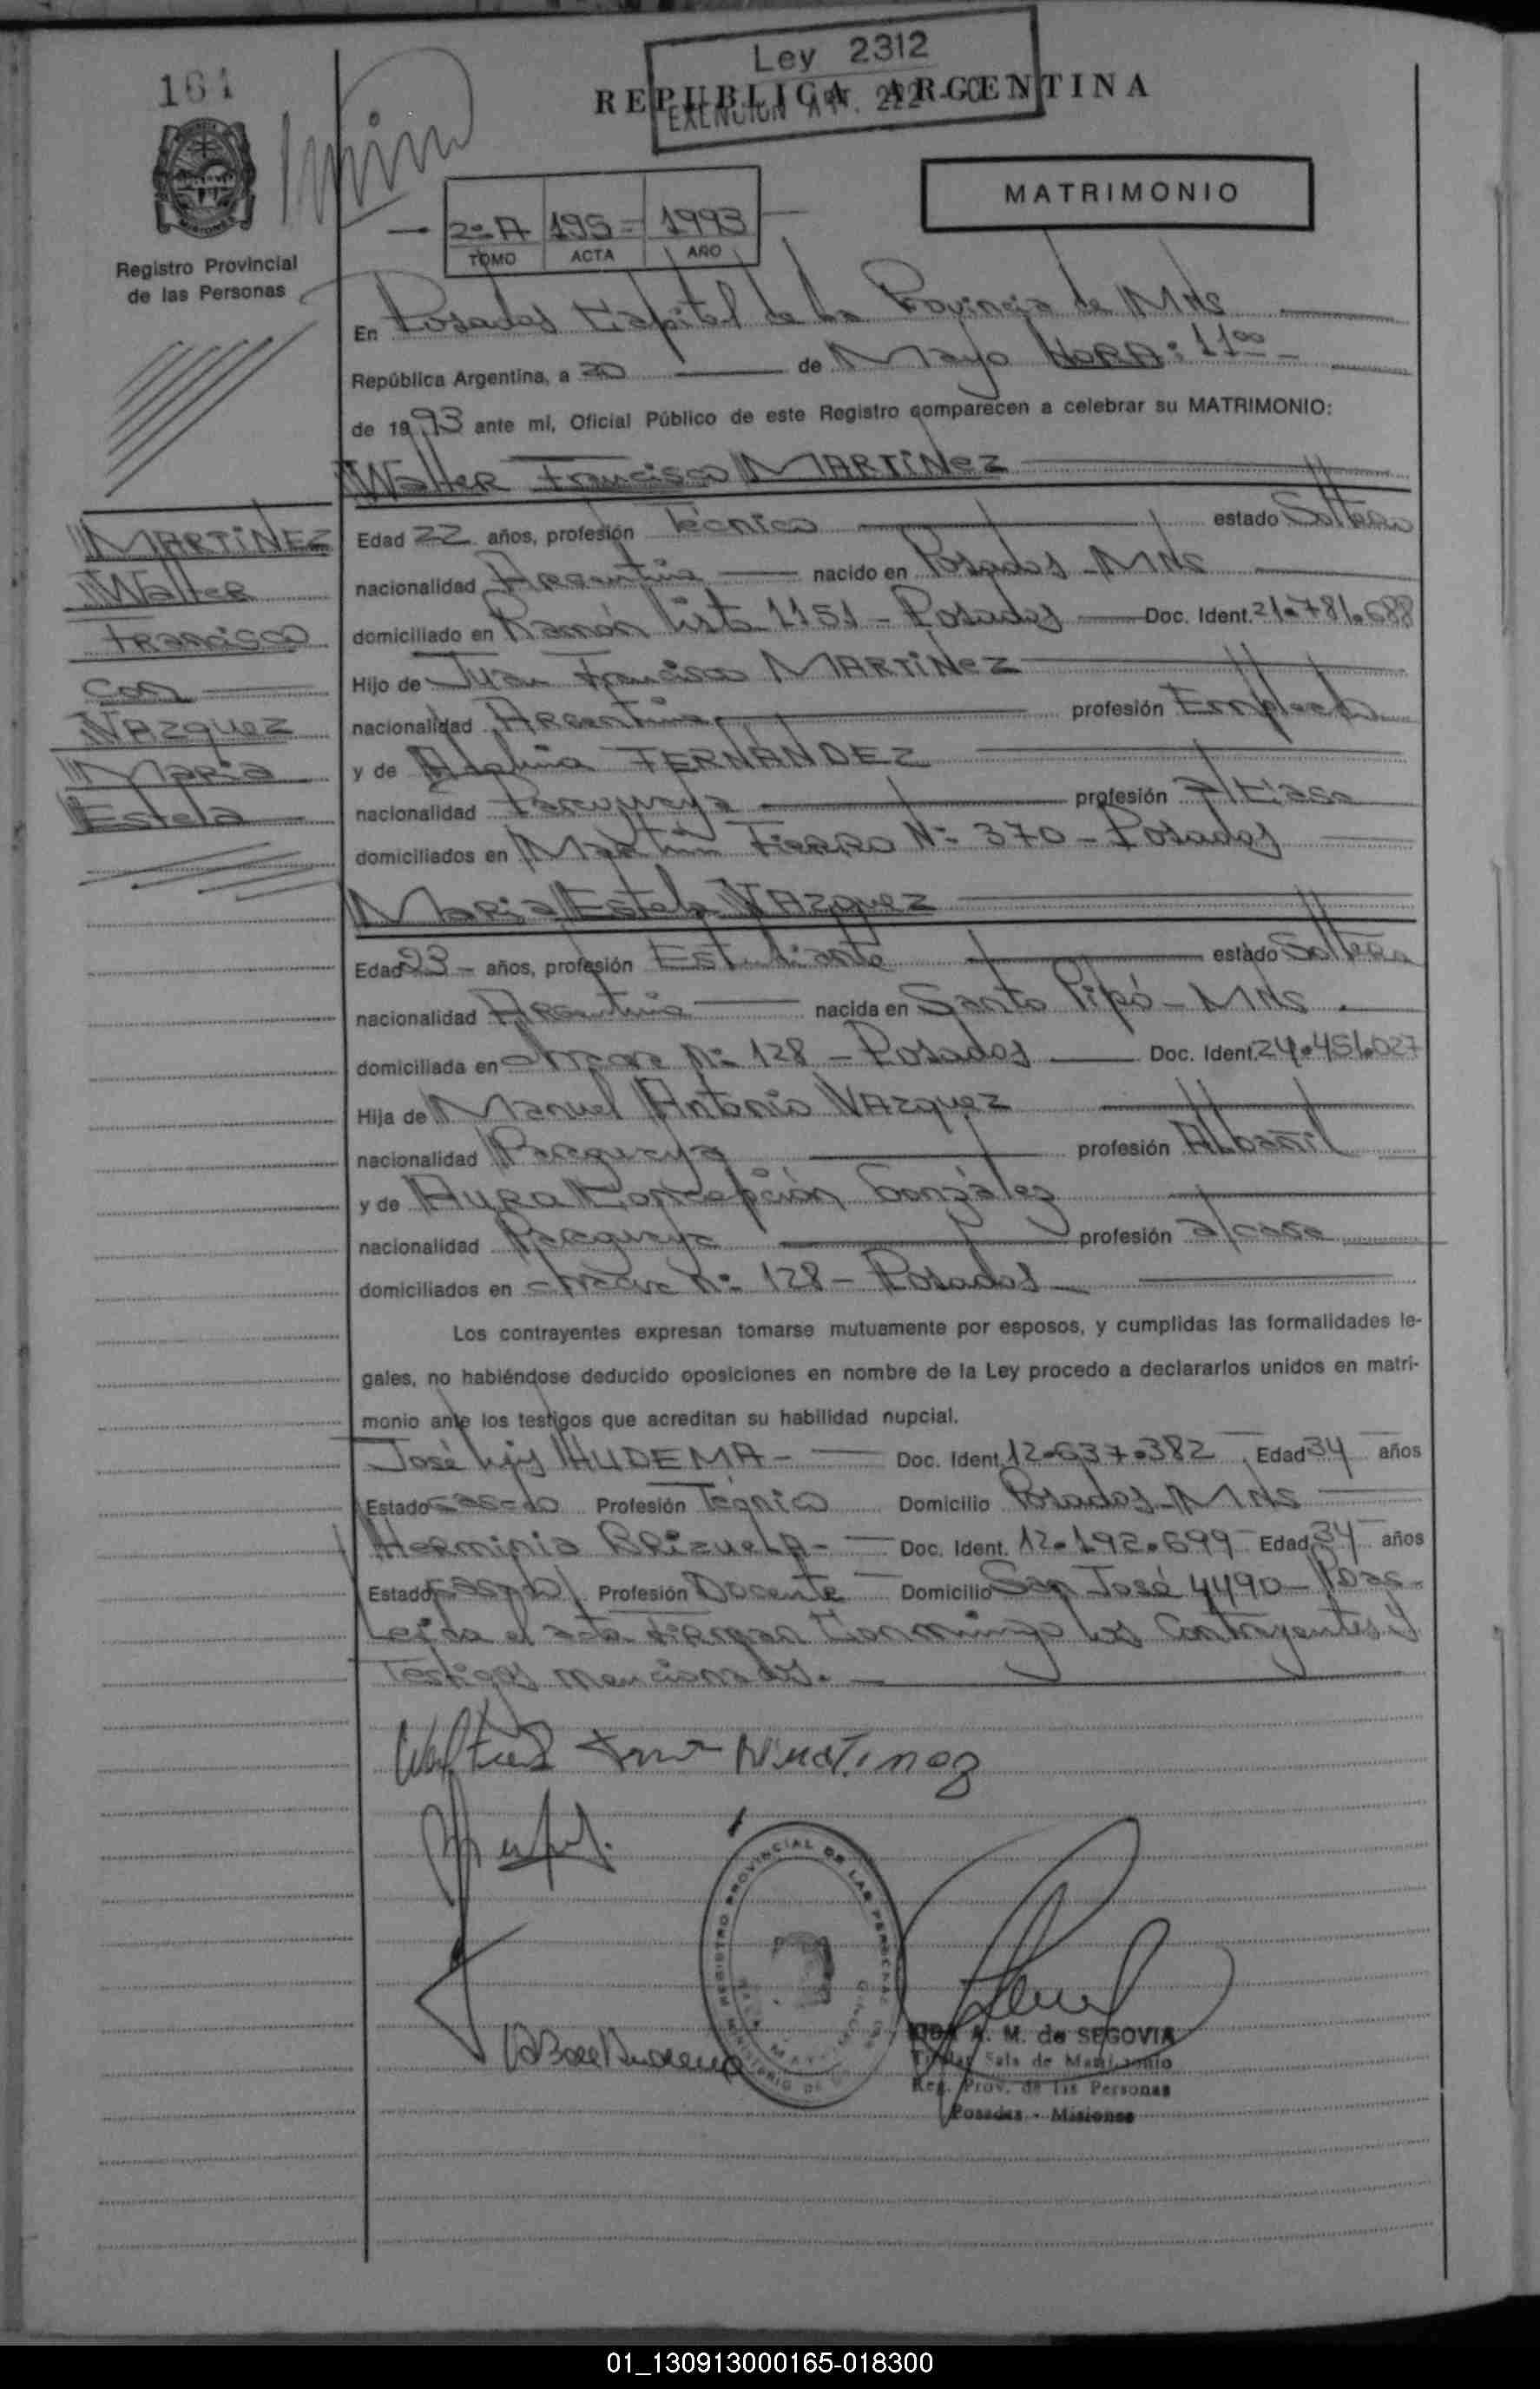 164
Ley 2312
REPUBLICA ARGENTINA
EXENCION ART. 222
MATRIMONIO
2º A 195 = 1993
TOMO ACTA AÑO
Registro Provincial
de las Personas
En Posadas Capital de la Provincia de MNS
República Argentina, a 20 de Mayo HORA: 11⁰⁰ -
de 1993 ante mi, Oficial Público de este Registro comparecen a celebrar su MATRIMONIO:
Walter Francisco MARTINEZ
MARTINEZ
Walter
Francisco
con
VAZquez
Maria
Estela
Edad 22 años, profesión Técnico estado Soltero
nacionalidad Argentina nacido en Posadas MNS
domiciliado en Ramón lista 1151 - Posadas Doc. Ident. 21.781.688
Hijo de Juan Francisco MARTINEZ
nacionalidad Argentina profesión Empleado
y de FERNANDEZ
nacionalidad Paraguaya profesión
domiciliados en Martin Fierro Nº 370 - Posadas
Maria Estela VAZquez
Edad 23 - años, profesión Estudiante estado Soltera
nacionalidad Argentina nacida en Santo Pipó - MNS.
domiciliada en Nº 128 - Posadas Doc. Ident. 24.451.027
Hija de Manuel Antonio VAZquez
nacionalidad Paraguaya profesión Albañil
y de AURA Concepción González
nacionalidad Paraguaya profesión a/casa
domiciliados en Nº 128 - Posadas
Los contrayentes expresan tomarse mutuamente por esposos, y cumplidas las formalidades le-
gales, no habiéndose deducido oposiciones en nombre de la Ley procedo a declararlos unidos en matri-
monio ante los testigos que acreditan su habilidad nupcial.
José Luis HUDEMA - Doc. Ident. 12.637.382 Edad 34 años
Estado casado Profesión Técnico Domicilio Posadas - MNS
Herminia BRizuelA - Doc. Ident. 12.192.699 Edad 34 años
Estado casada Profesión Docente Domicilio San José 4490 - Pdas -
Leida el acta Firman Conmingo los Contrayentes y
Testigos mencionados.
Martinez
REGISTRO PROVINCIAL DE LAS PERSONAS
A. M. de SEGOVIA
Titular Sala de Matrimonio
Reg. Prov. de las Personas
Posadas - Misiones
01_130913000165-018300